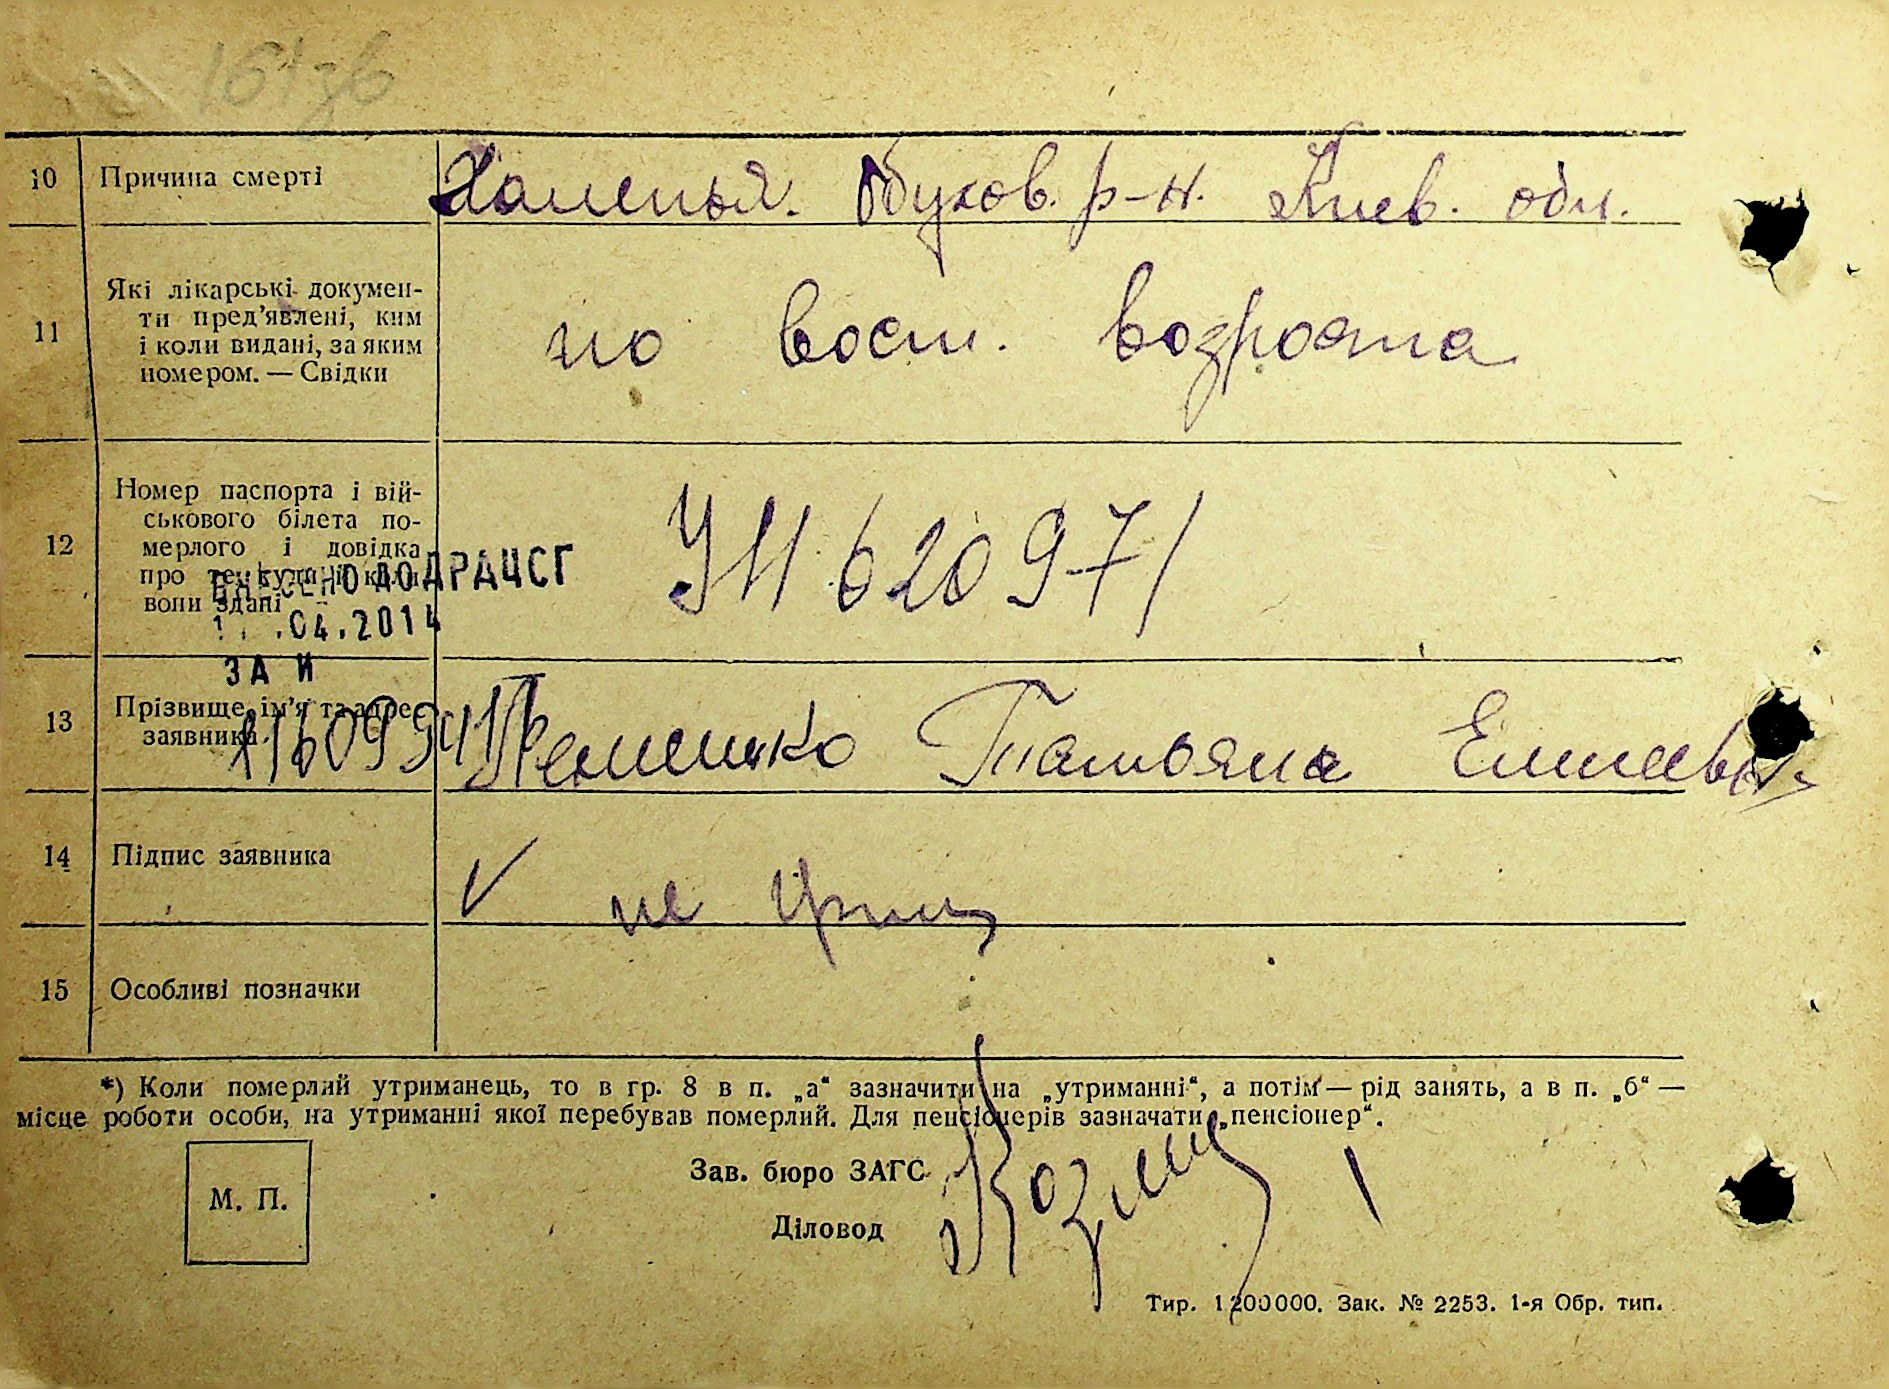 10 Причина смерті Халепья. Обухов. р-н. Киев. обл.
11 Які лікарські докумен-
ти пред’явлені, ким
і коли видані, за яким
номером. — Свідки
по восп. возраста
12 Номер паспорта і вій-
ськового білета по-
мерлого і довідка
про те, куди і коли
вони здані
620971
ВНЕСЕНО ДО ДРАЦСГ
.04.2014
ЗА N
13 Прізвище, ім’я та адрес
заявника
Татьяна
14 Підпис заявника
V не
15 Особливі позначки
*) Коли померлий утриманець, то в гр. 8 в п. „а“ зазначити на „утриманні“, а потім — рід занять, а в п. „б“ —
місце роботи особи, на утриманні якої перебував померлий. Для пенсіонерів зазначати „пенсіонер“.
Зав. бюро ЗАГС
М. П.
Діловод
Тир. 1200000. Зак. № 2253. 1-я Обр. тип.